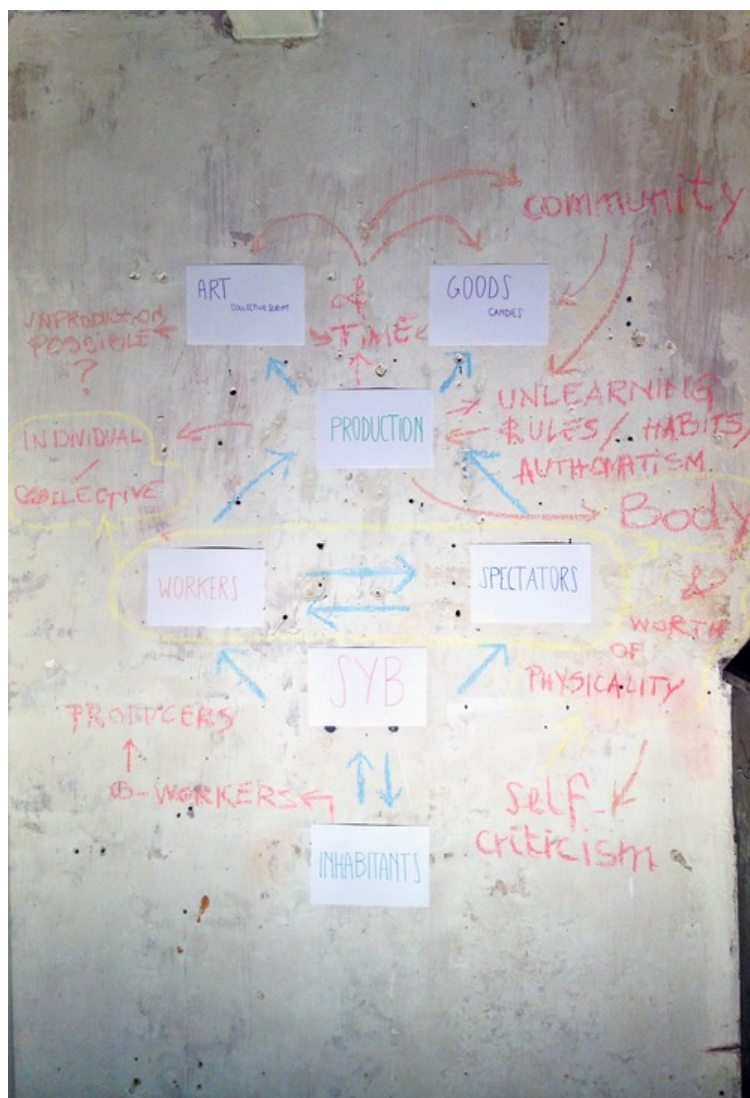 community
ART
COLLECTIVE SCRIPT
of
TIME
GOODS
CANDIES
POSSIBLE
?
PRODUCTION
UNLEARNING
RULES / HABITS /
AUTHOMATISM
INDIVIDUAL
/
COLLECTIVE
Body
&
WORTH
OF
PHYSICALITY
WORKERS
SPECTATORS
SYB
PRODUCERS
WORKERS
self-
criticism
INHABITANTS